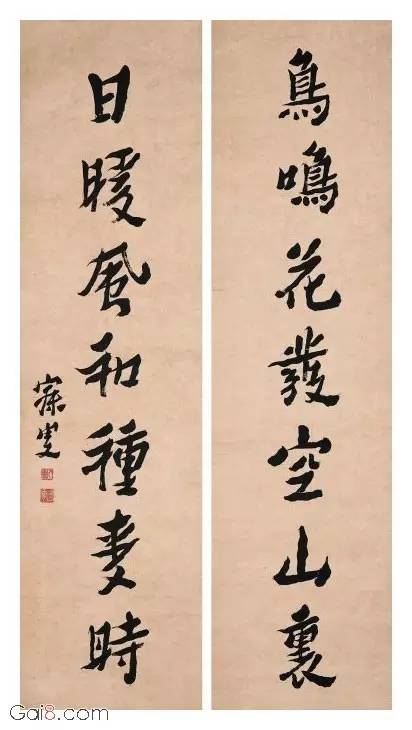 鳥鳴花發空山裏
日暖風和種麥時
寐叟
Gai8.com